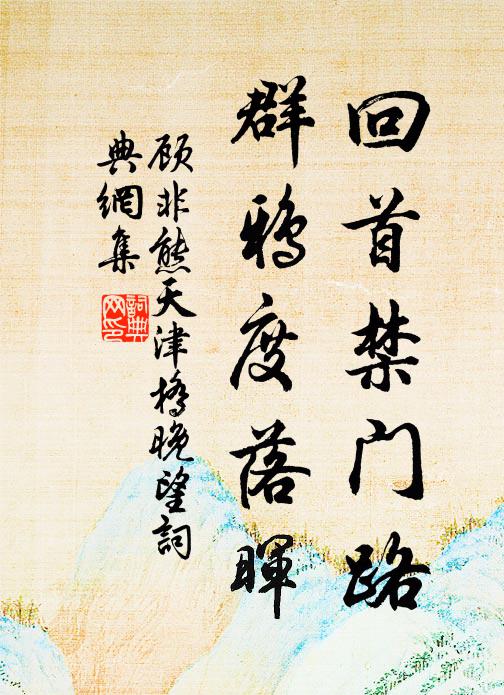 回首禁门路
群鸦度落晖
顾非熊天津桥晚望词
典網集
詞典
网印